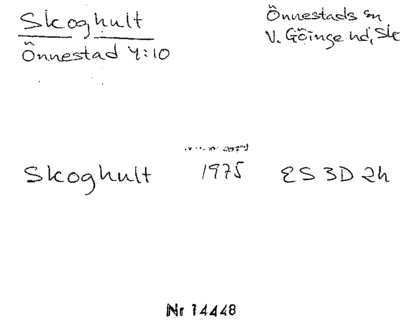 Skoghult
Önnestad 4:10
Önnestads sn
V. Göinge hd, Sk
Skoghult 1975 ES 3D 2h
Nr 14448